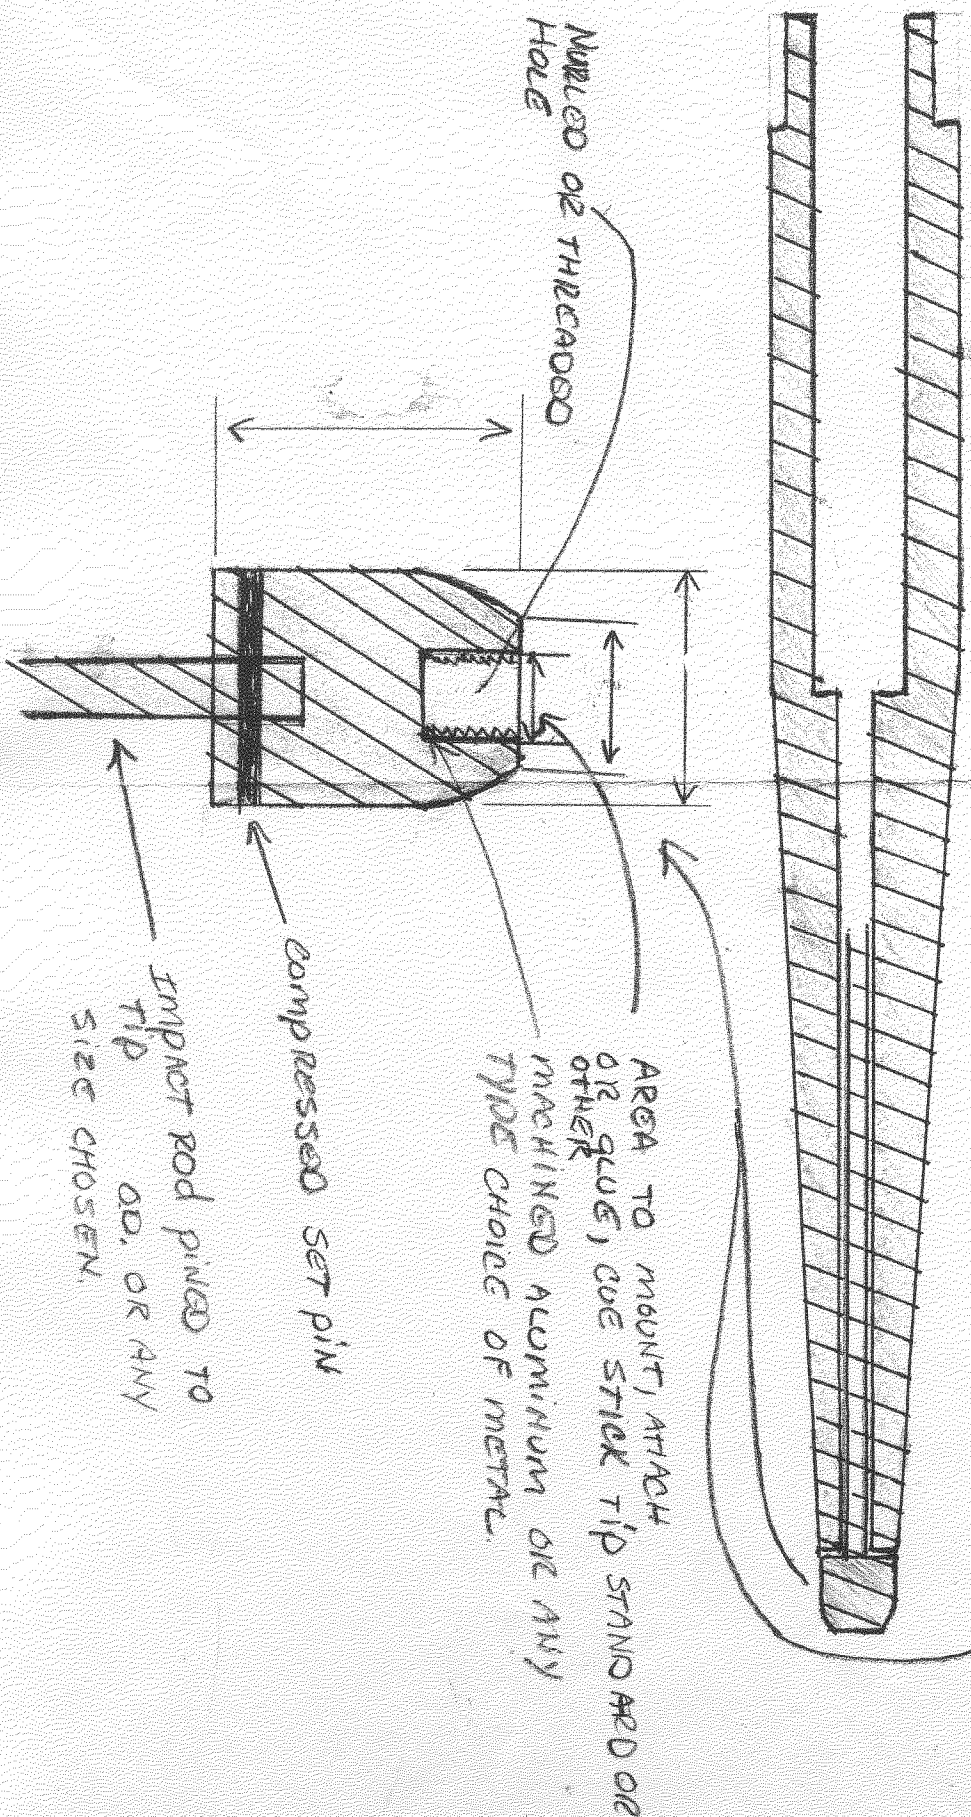 NURLED OR THREADED
HOLE
AREA TO MOUNT, ATTACH
OR GLUE, CUE STICK TIP STANDARD OR
OTHER
MACHINED ALUMINUM OR ANY
TYPE CHOICE OF METAL.
COMPRESSED SET PIN
IMPACT ROD PINED TO
TIP OD. OR ANY
SIZE CHOSEN.